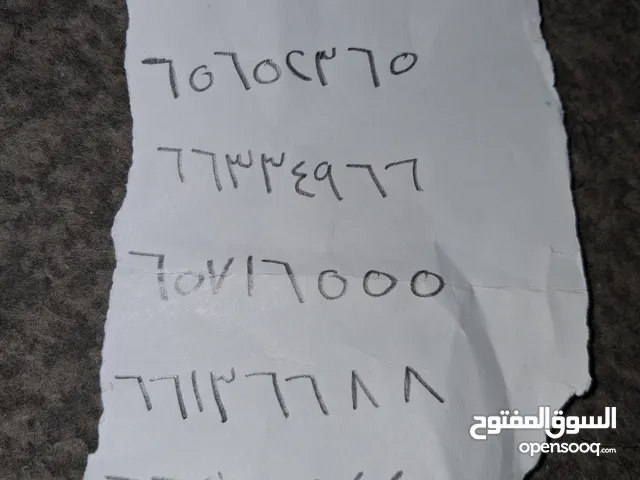 ٦٥٦٥٢٣٦٥
٦٦٣٣٤٩٦٦
٦٥٧١٦٥٥٥
٦٦١٣٦٦٨٨
السوق المفتوح
opensooq.com